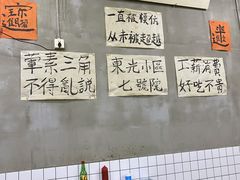 一直被模仿
从未被超越
葷素三角
不得亂説
東光小區
七號院
工薪消費
好吃不貴